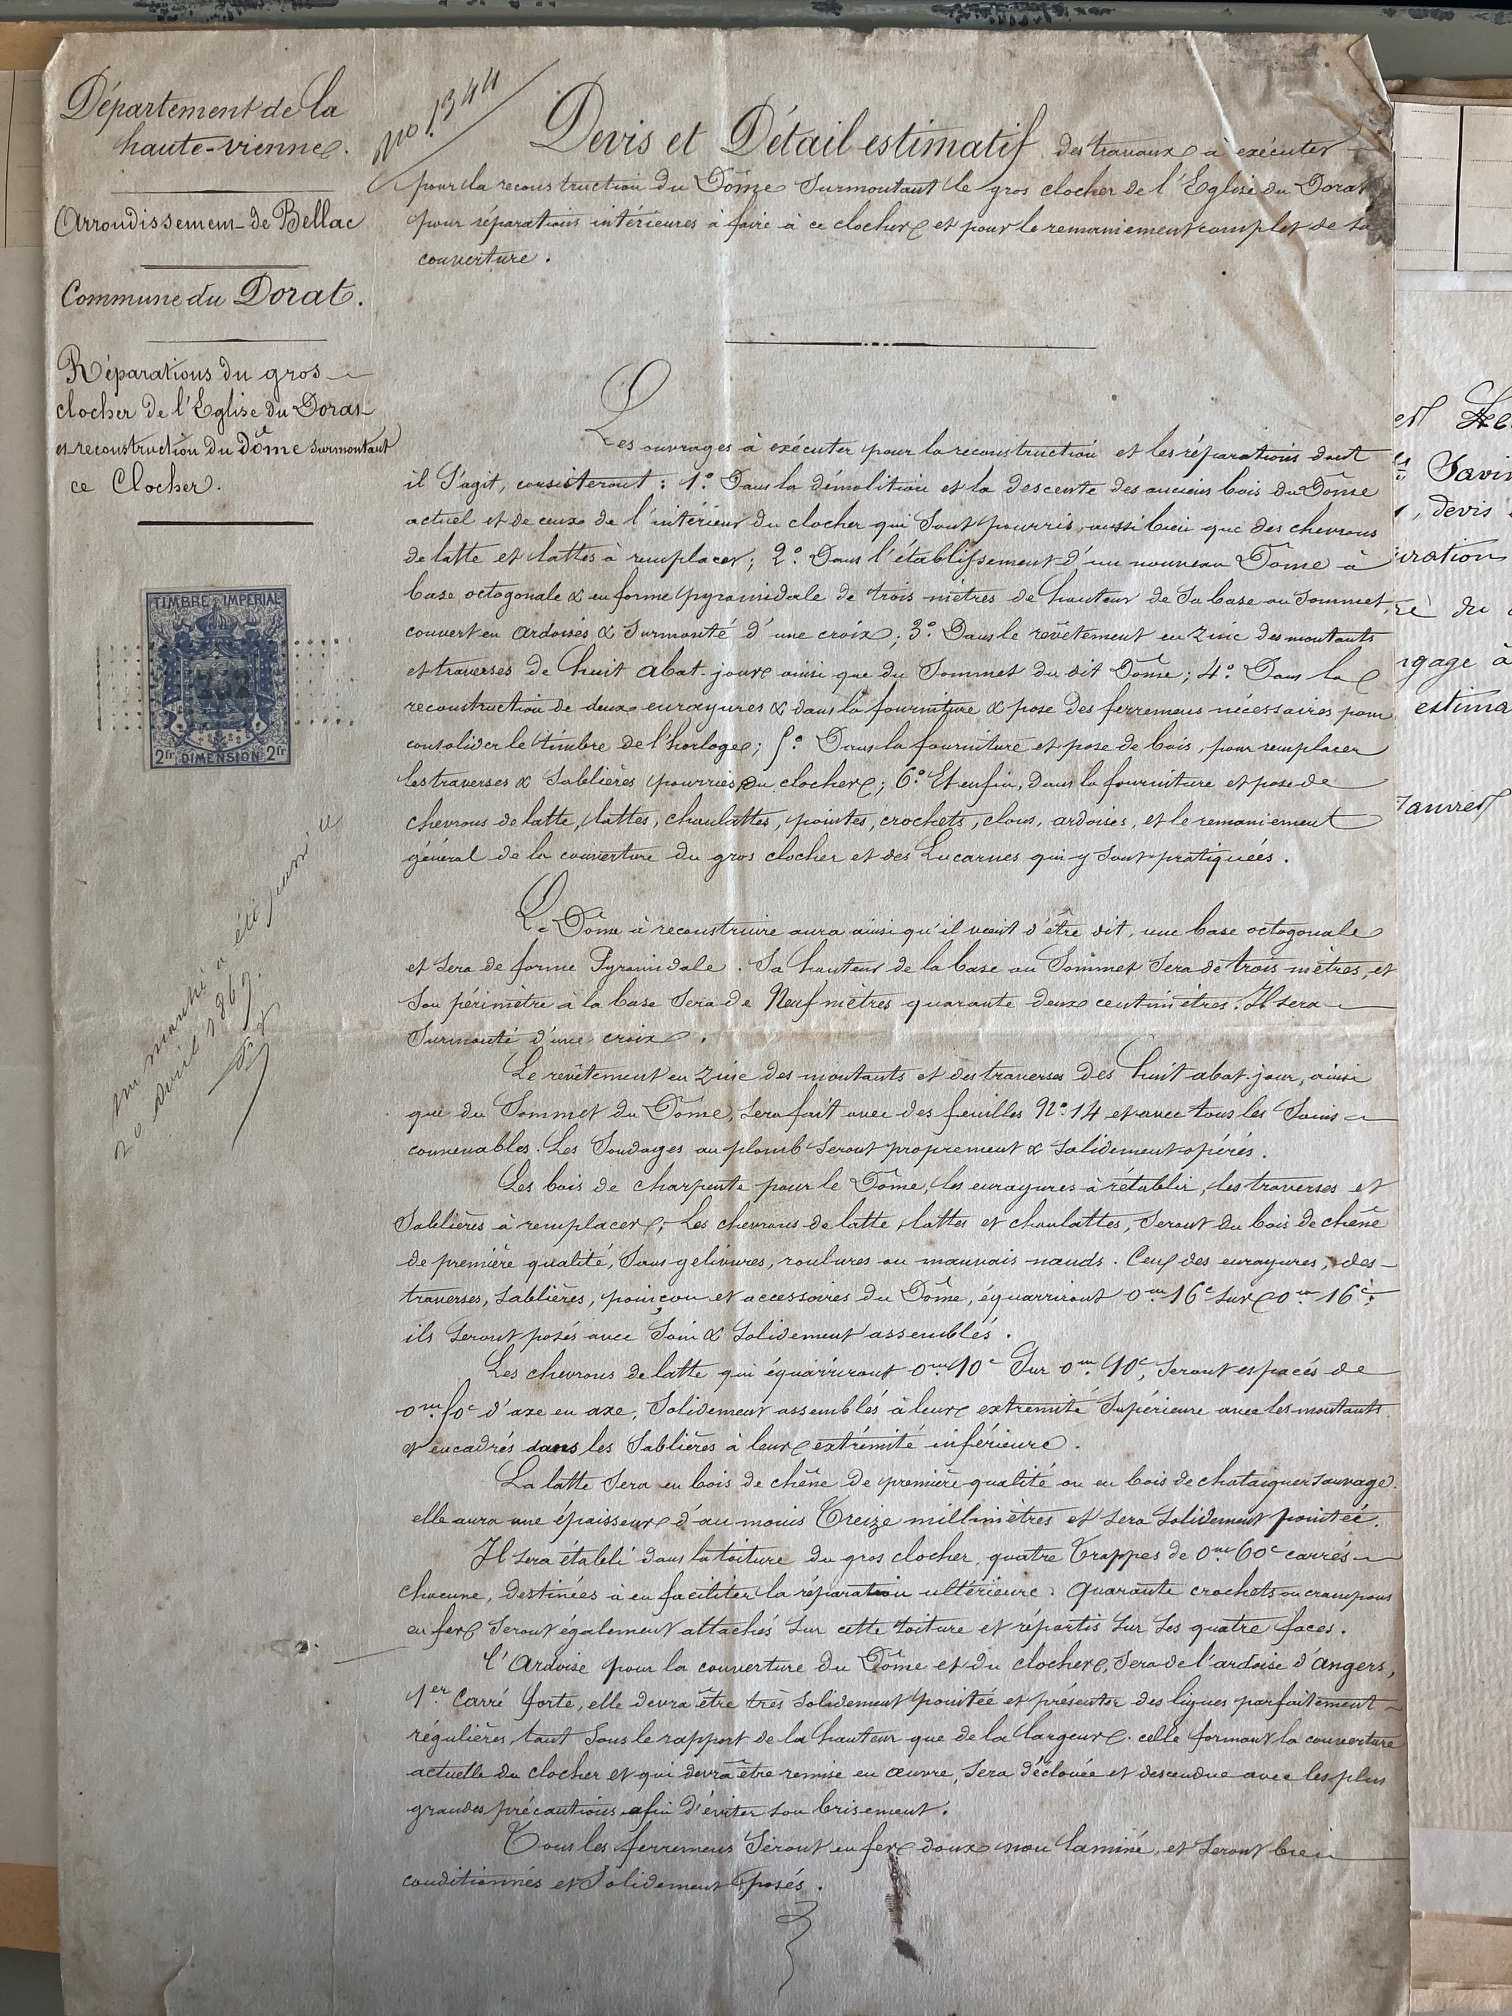 Département de la
haute-vienne.
Arrondissement de Bellac
Commune du Dorat.
Réparations du gros
clocher de l'Eglise du Dorat
et reconstruction du Dôme surmontant
ce Clocher.
TIMBRE IMPÉRIAL
2fr DIMENSION 2fr
un marché a été passé le
20 avril 1869.
No. 1344
Devis et Détail estimatif des travaux à exécuter
pour la reconstruction du Dôme surmontant le gros clocher de l'Eglise du Dorat
pour réparations intérieures à faire à ce clocher et pour le remaniement complet de sa
couverture.
Les ouvrages à exécuter pour la reconstruction et les réparations dont
il s'agit, consisteront : 1.° Dans la démolition et la descente des anciens bois du Dôme
actuel et de ceux de l'intérieur du clocher qui sont pourris, aussi bien que des chevrons
de latte et lattes à remplacer; 2.° Dans l'établissement d'un nouveau Dôme à
base octogonale & en forme pyramidale de trois mètres de hauteur de sa base au sommet,
couvert en ardoises & surmonté d'une croix; 3.° Dans le revêtement en zinc des montants
et traverses de huit abat-jour ainsi que du sommet du dit Dôme; 4.° Dans la
reconstruction de deux enrayures & dans la fourniture & pose des ferremens nécessaires pour
consolider le timbre de l'horloge; 5.° Dans la fourniture et pose de bois, pour remplacer
les traverses & sablières pourries du clocher; 6.° Et enfin, dans la fourniture et pose de
chevrons de latte, lattes, chanlattes, pointes, crochets, clous, ardoises, et le remaniement
général de la couverture du gros clocher et des Lucarnes qui y sont pratiquées.
Le Dôme à reconstruire aura ainsi qu'il vient d'être dit, une base octogonale
et sera de forme Pyramidale. Sa hauteur de la base au sommet sera de trois mètres, et
son périmètre à la base sera de Neuf mètres quarante deux centimètres. Il sera
surmonté d'une croix.
Le revêtement en zinc des montants et des traverses des huit abat-jour, ainsi
que du sommet du Dôme, sera fait avec des feuilles N.° 14 et avec tous les soins
convenables. Les soudages au plomb seront proprement & solidement opérés.
Les bois de charpente pour le Dôme, les enrayures à rétablir, les traverses et
sablières à remplacer, les chevrons de latte, lattes et chanlattes, seront du bois de chêne
de première qualité, sans gelivures, roulures ou mauvais nœuds. Ceux des enrayures, des
traverses, sablières, poinçon et accessoires du Dôme, équarriront 0m 16c sur 0m 16c;
ils seront posés avec soin & solidement assemblés.
Les chevrons de latte qui équarriront 0m 10c sur 0m. 10c, seront espacés de
0m. 50c d'axe en axe, solidement assemblés à leur extrémité supérieure avec les montants
et encadrés dans les sablières à leur extrémité inférieure.
La latte sera en bois de chêne de première qualité ou en bois de chataigner sauvage.
elle aura une épaisseur d'au moins Treize millimètres et sera solidement pointée.
Il sera établi dans la toiture du gros clocher, quatre Trappes de 0m 60c carrés
chacune, destinées à en faciliter la réparation ultérieure. Quarante crochets ou crampons
en fer seront également attachés sur cette toiture et répartis sur ses quatre faces.
L'Ardoise pour la couverture du Dôme et du clocher, sera de l'ardoise d'angers,
1er carré forte, elle devra être très solidement pointée et présenter des lignes parfaitement
régulières, tant sous le rapport de la hauteur que de la largeur. celle formant la couverture
actuelle du clocher et qui devra être remise en œuvre, sera déclouée et descendue avec les plus
grandes précautions afin d'éviter son brisement.
Tous les ferremens seront en fer doux non laminé, et seront bien
conditionnés et solidement posés.
Savin
, devis
estima